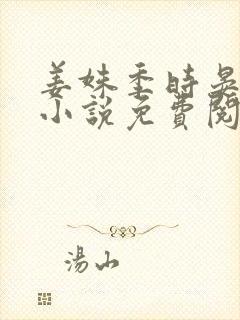 姜妹季時晟
小說免費閱
湯山